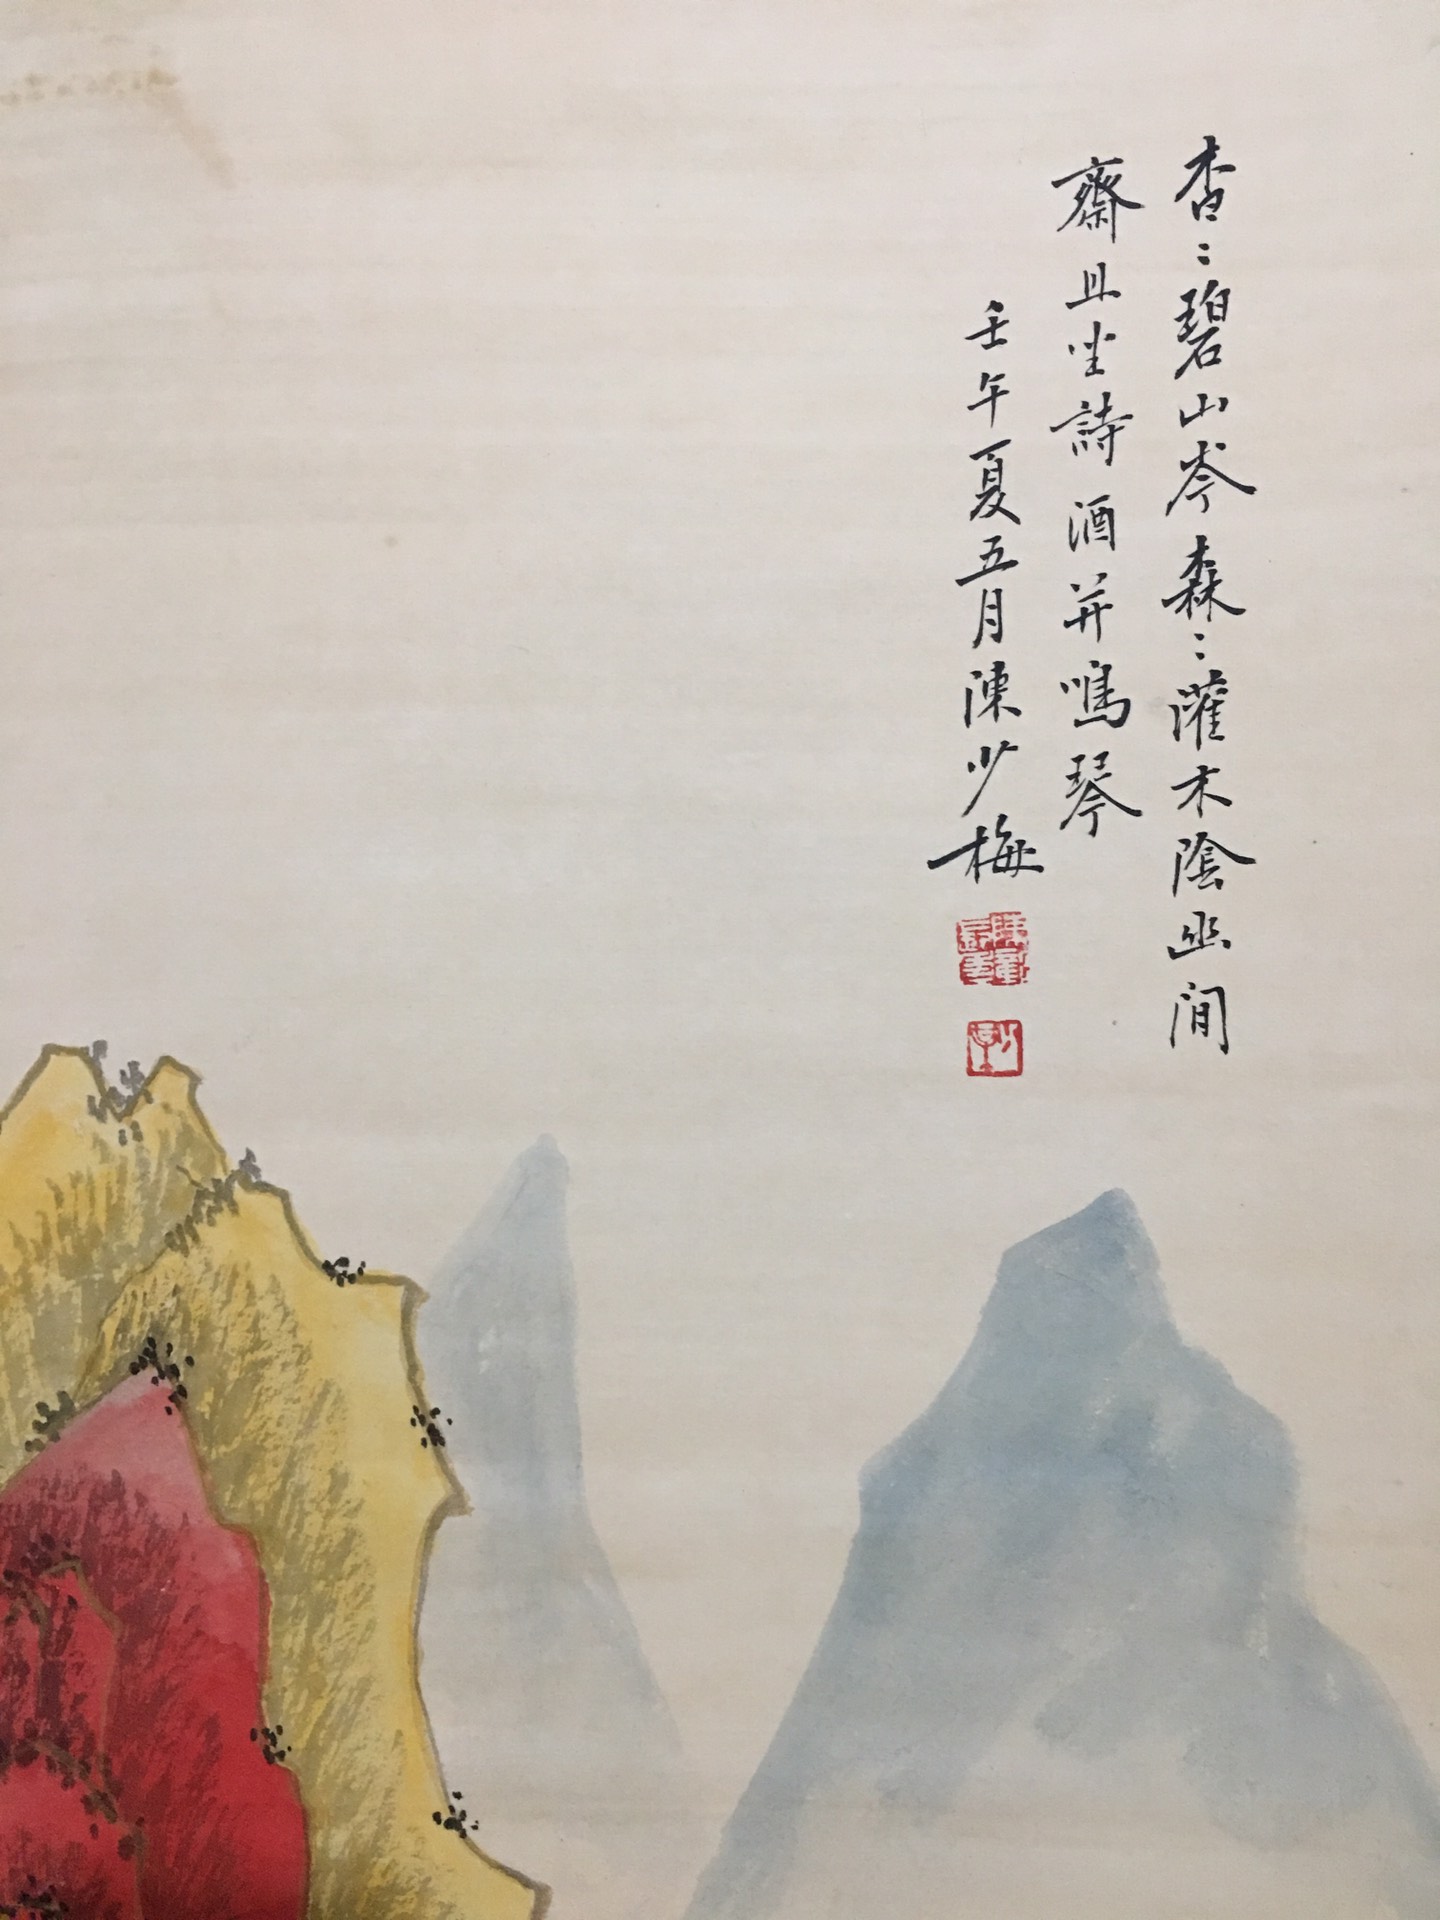 杳〻碧山岑森〻灌木陰幽閒
齋且坐詩酒并鳴琴
壬午夏五月陳少梅